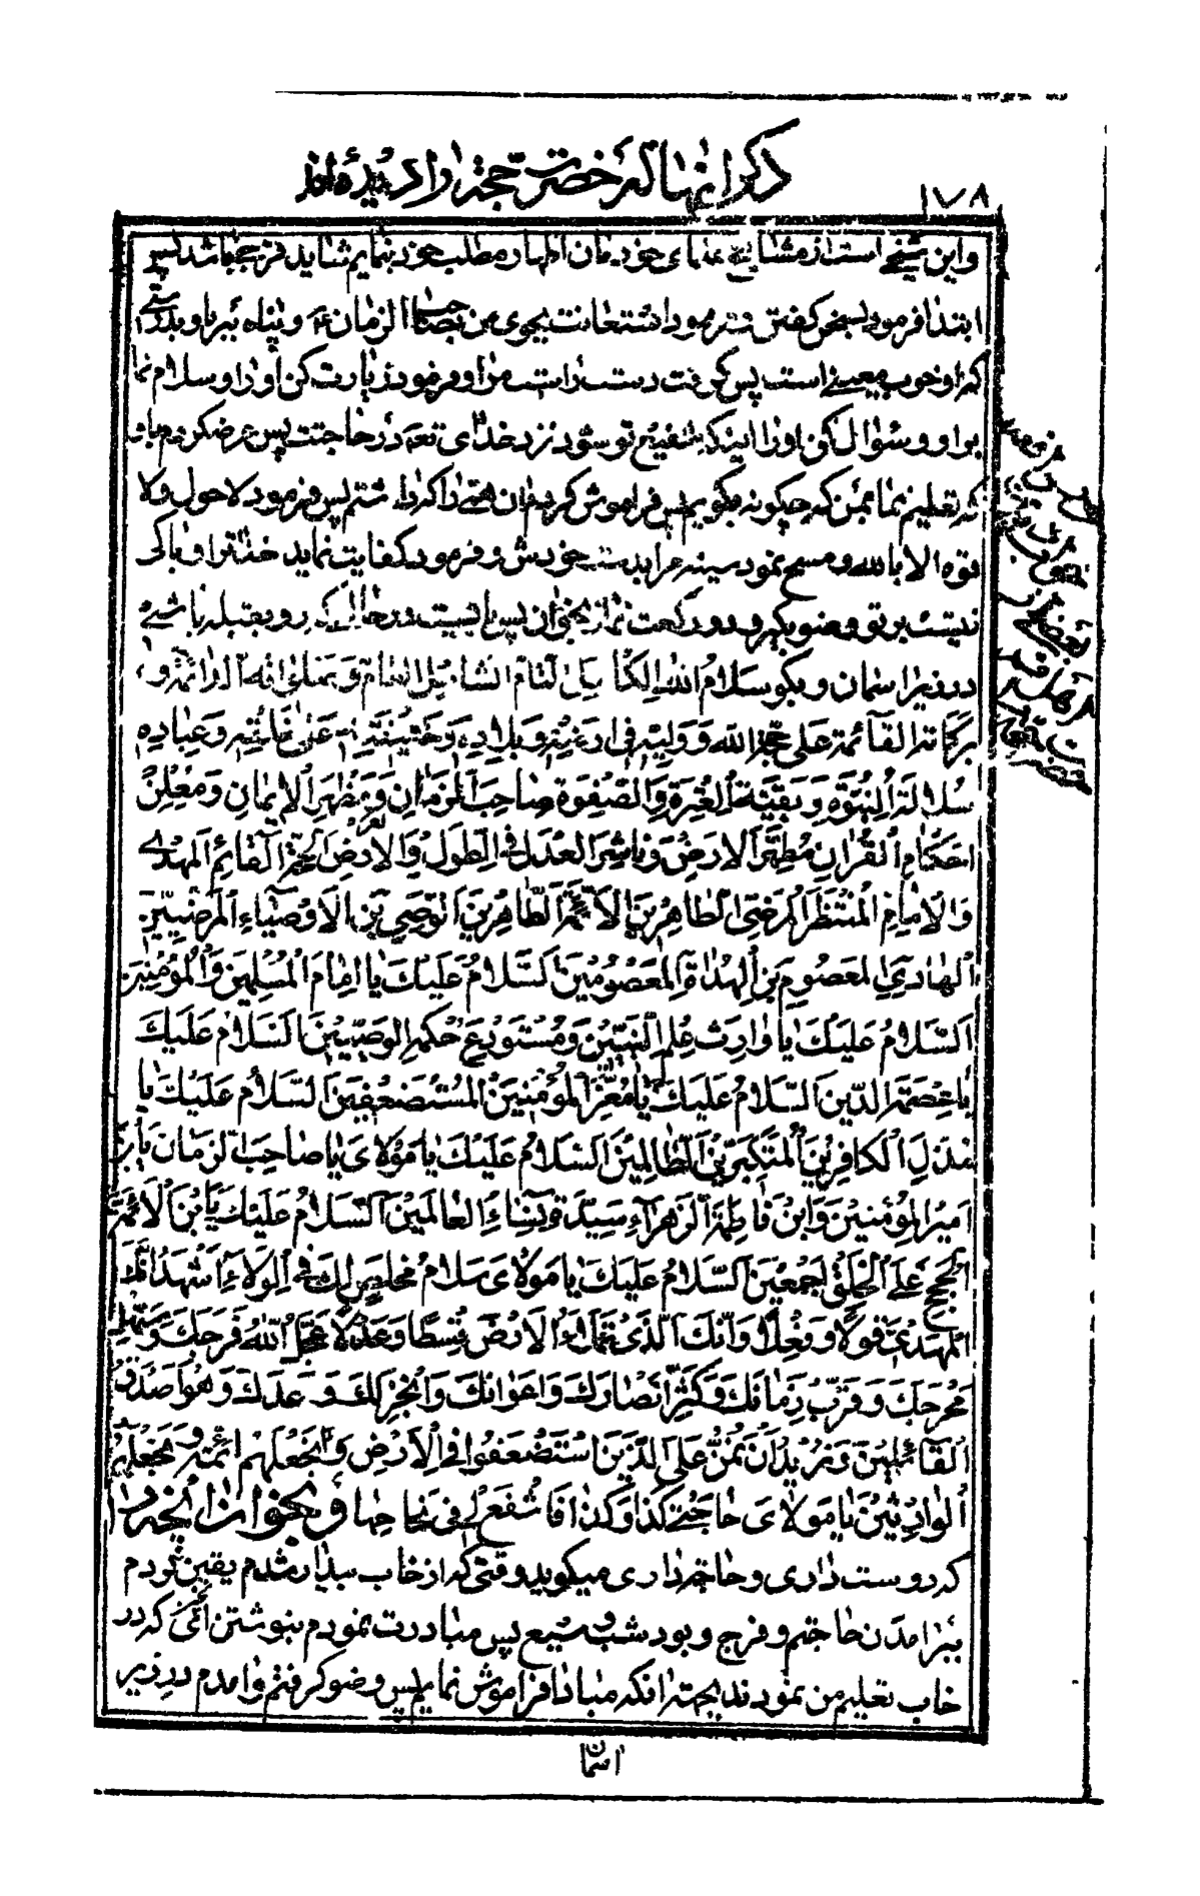 ذكر آنها كه حضرت حجة را ديده اند
١٧٨
و اين شيخى است از مشايخ علماى خودمان اظهار مطلب خود بنمايم شايد فرجى باشد پس
ابتدا فرمود بسخن گفتن فرمود استعانت بجوى من بصاحب الزمان ع و پناه ببر باو بدرستى
كه او خوب معينى است پس گرفت دست راست مرا و فرمود زيارت كن او را و سلام نما
بر او و سؤال كن او را اينكه شفيع تو شود نزد خداى تع در حاجتت پس عرض كردم باو
كه تعليم نما بمن كه چگونه بگويم پس فراموش كردم آن همى را كه داشتم پس فرمود لا حول ولا
قوة الا بالله و مسح نمود سينه مرا بدست خودش و فرمود كفايت نمايد خدا ترا و باكى
نيست بر تو وضو بگير و دو ركعت نماز بخوان پس بايست در حالى كه رو بقبله باشى
در زير اسمان و بگو سَلامُ اللهِ الكامِلُ التّامُّ الشّامِلُ العامُّ وَ صَلَواتُهُ الدّائِمَةُ وَ
بَرَكاتُهُ القآئِمَةُ عَلى حُجَّةِ اللهِ وَ وَلِيِّهِ فى اَرضِهِ وَ بِلادِهِ وَ خَليفَتِهِ عَلى خَلقِهِ وَ عِبادِهِ
سُلالَةِ النُّبُوَّةِ وَ بَقِيَّةِ العِترَةِ وَ الصَّفوَةِ صاحِبِ الزَّمانِ وَ مُظهِرِ الايمانِ وَ مُعلِنِ
اَحكامِ القُرانِ مُطَهِّرِ الاَرضِ وَ ناشِرِ العَدلِ فى الطّولِ وَ العَرضِ الحُجَّةِ القآئِمِ المَهدِىِّ
وَ الاِمامِ المُنتَظَرِ المُرتَضَى الطّاهِرِ بنِ الاَئِمَّةِ الطّاهِرينَ الوَصِىِّ بنِ الاَوصِيآءِ المَرضِيّينَ
الهادِى المَعصومِ بنِ الهُداةِ المَعصومينَ اَلسَّلامُ عَلَيكَ يا اِمامَ المُسلِمينَ وَ المُؤمِنينَ
اَلسَّلامُ عَلَيكَ يا وارِثَ عِلمِ النَّبِيّينَ وَ مُستَودَعَ حُكمِ الوَصِيّينَ اَلسَّلامُ عَلَيكَ
يا عِصمَةَ الدّينِ اَلسَّلامُ عَلَيكَ يا مُعِزَّ المُؤمِنينَ المُستَضعَفينَ اَلسَّلامُ عَلَيكَ يا
مُذِلَّ الكافِرينَ المُتَكَبِّرينَ الظّالِمينَ اَلسَّلامُ عَلَيكَ يا مَولاىَ يا صاحِبَ الزَّمانِ يَابنَ
اَميرِ المُؤمِنينَ وَ ابنَ فاطِمَةَ الزَّهرآءِ سَيِّدَةِ نِسآءِ العالَمينَ اَلسَّلامُ عَلَيكَ يَابنَ الاَئِمَّةِ
الحُجَجِ عَلَى الخَلقِ اَجمَعينَ اَلسَّلامُ عَلَيكَ يا مَولاىَ سَلامَ مُخلِصٍ لَكَ فى الوَلاءِ اَشهَدُ اَنَّكَ
المَهدِىُّ قَولاً وَ فِعلاً وَ اَنَّكَ الَّذى تَملَأُ الاَرضَ قِسطاً وَ عَدلاً عَجَّلَ اللهُ فَرَجَكَ وَ سَهَّلَ
مَخرَجَكَ وَ قَرَّبَ زَمانَكَ وَ كَثَّرَ اَنصارَكَ وَ اَعوانَكَ وَ اَنجَزَ لَكَ وَعدَكَ وَ هُوَ اَصدَقُ
القآئِلينَ وَ نُريدُ اَن نَمُنَّ عَلَى الَّذينَ استُضعِفوا فى الاَرضِ وَ نَجعَلَهُم اَئِمَّةً وَ نَجعَلَهُمُ
الوارِثينَ يا مَولاىَ حاجَتى كَذا وَ كَذا فَاشفَع لى فى نَجاحِها و بخوان آنچه را
كه دوست دارى و حاجة دارى ميگويد وقتى كه از خاب بيدار شدم يقين كردم
ببرامدن حاجتم و فرج و بود شب وسيع پس مبادرت نمودم بنوشتن آنچه كه در
خاب تعليم من نمودند بجهة آنكه مبادا فراموش نمايم پس وضو گرفتم وامدم در زير
اسمان